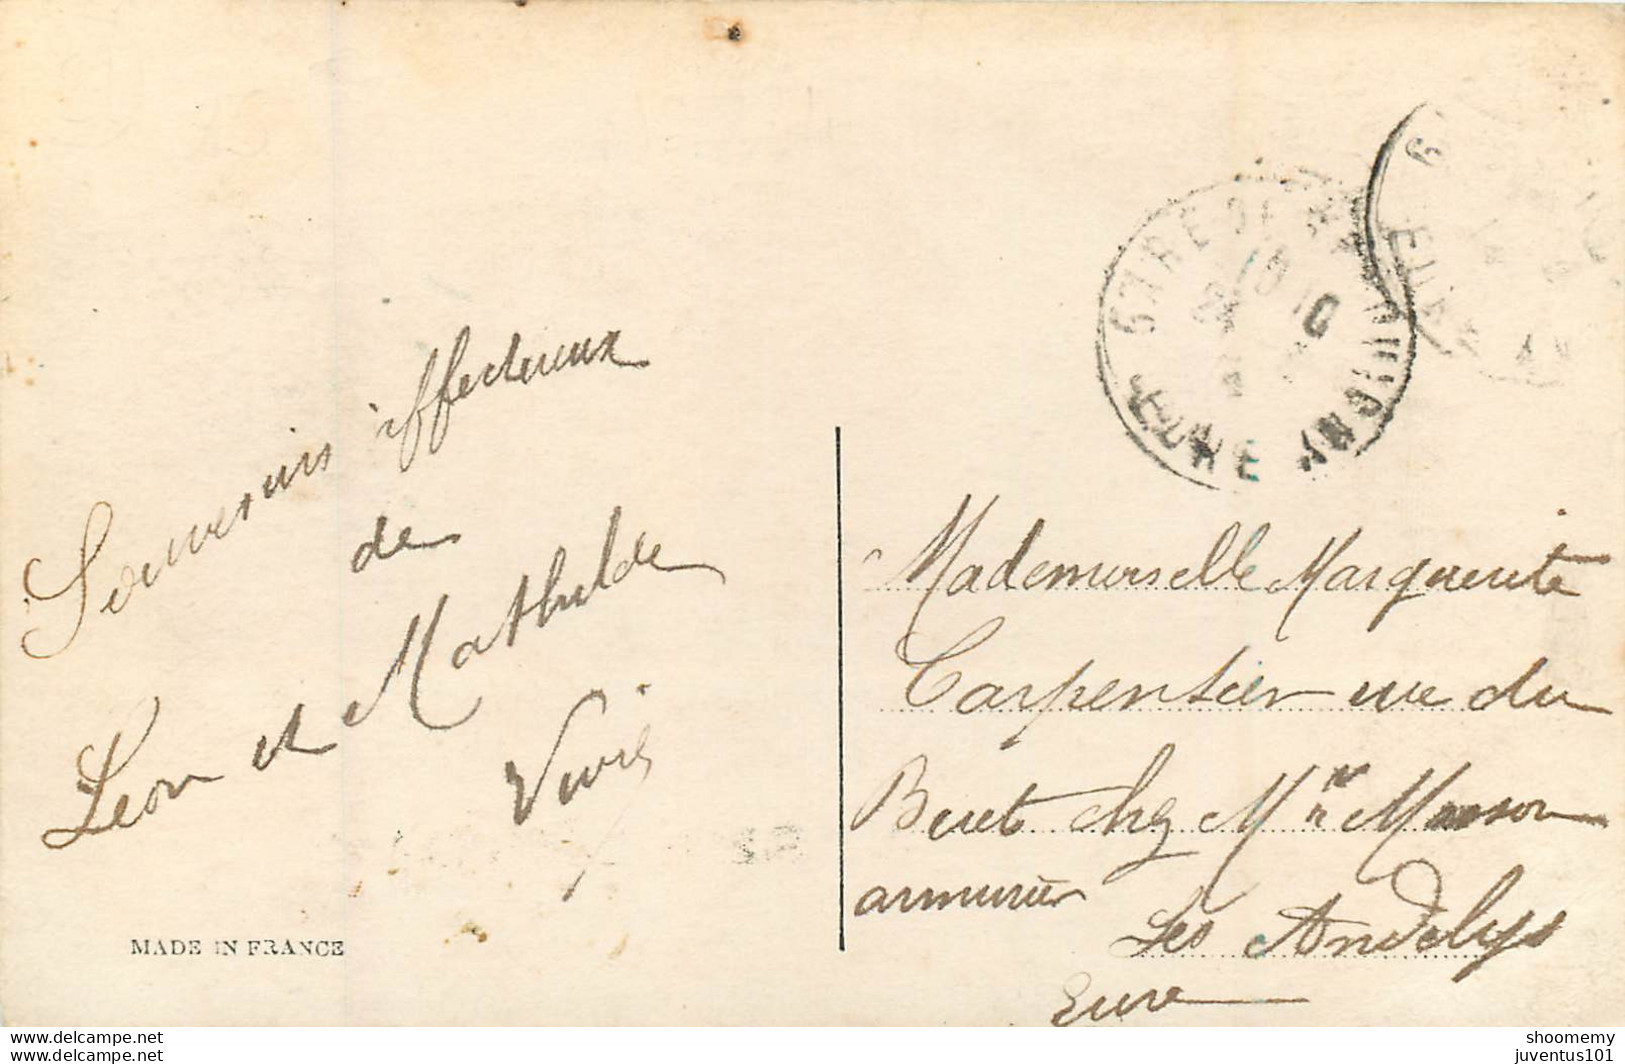 Souvenirs affectueux
de
Léon et Mathilde
MADE IN FRANCE
GARE DE
10
EURE
Mademoiselle Marguerite
Carpentier rue du
Buet chez Mr Masson
armurier
Les Andelys
Eure
www.delcampe.net
shoomemy
juventus101